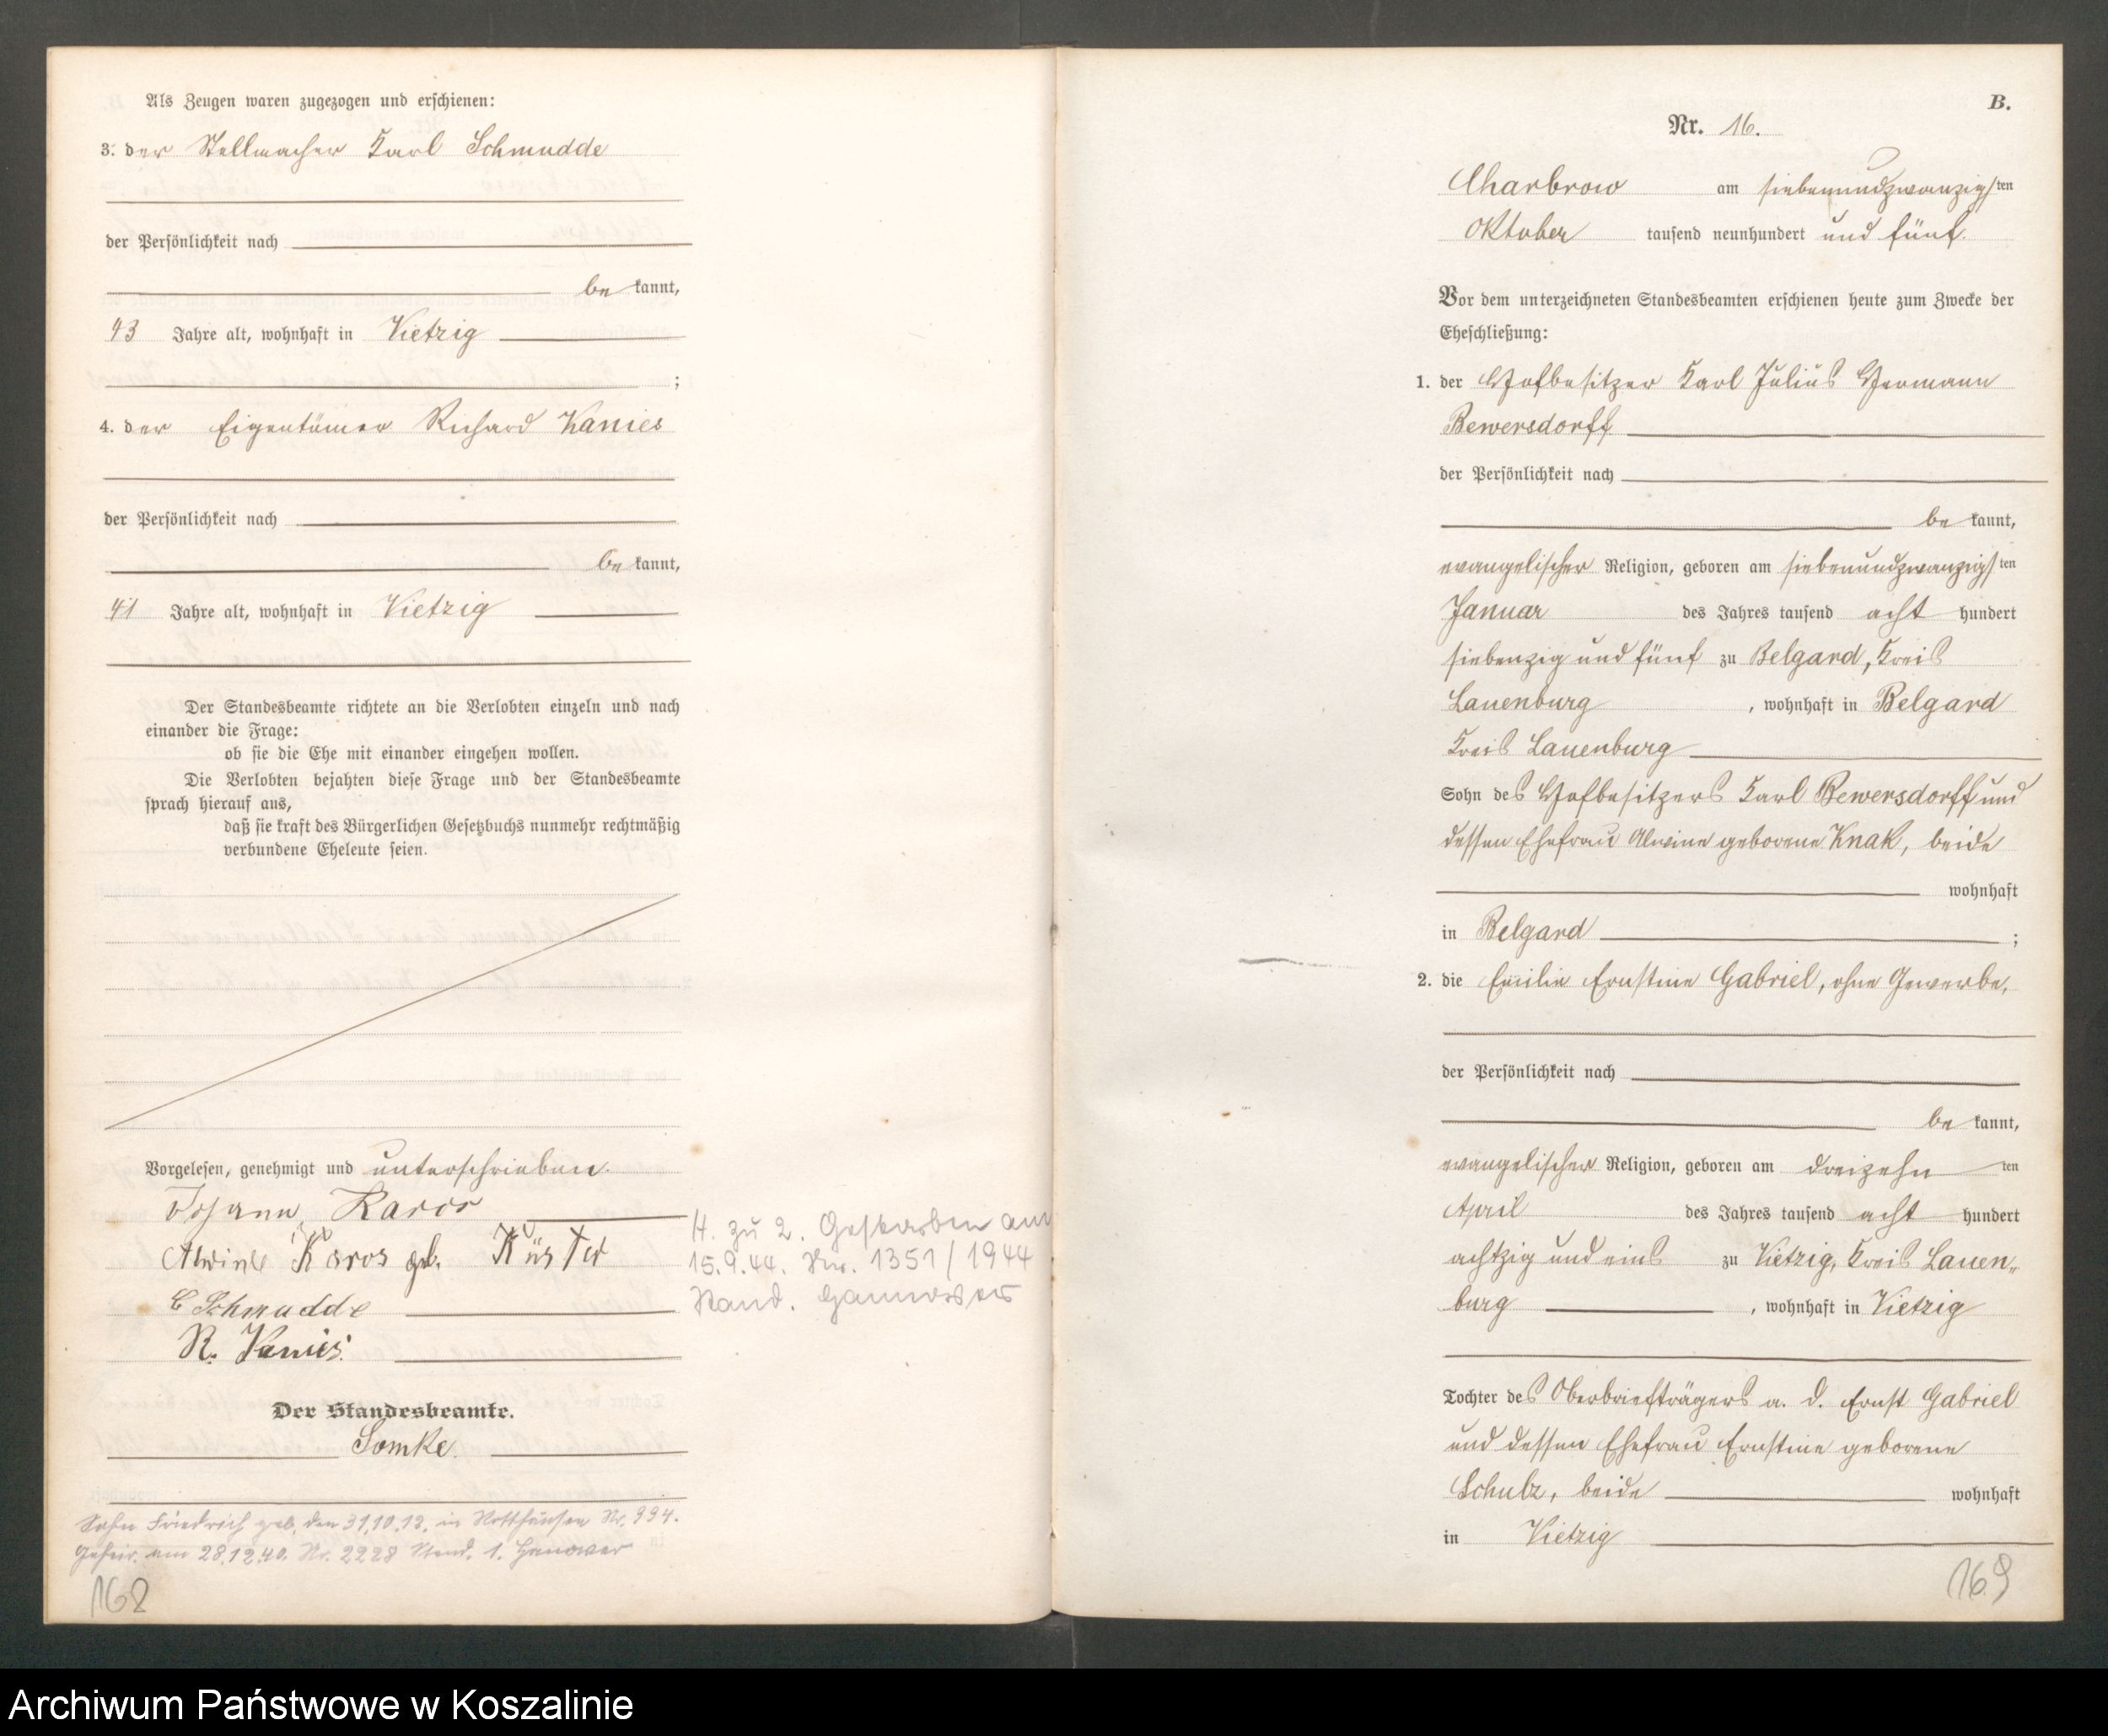 Als Zeugen waren zugezogen und erschienen:
3. der Stellmacher Karl Schmudde
der Persönlichkeit nach
be kannt,
43 Jahre alt, wohnhaft in Vietzig
;
4. der Eigentümer Richard Kanies
der Persönlichkeit nach
be kannt,
41 Jahre alt, wohnhaft in Vietzig
Der Standesbeamte richtete an die Verlobten einzeln und nach
einander die Frage:
ob sie die Ehe mit einander eingehen wollen.
Die Verlobten bejahten diese Frage und der Standesbeamte
sprach hierauf aus,
daß sie kraft des Bürgerlichen Gesetzbuchs nunmehr rechtmäßig
verbundene Eheleute seien.
Vorgelesen, genehmigt und unterschrieben.
Johann Karos
Alwine Karos geb. Küster
C Schmudde
R. Kanies.
Der Standesbeamte.
Somke.
H. zu 2. Gestorben am
15.9.44. Nr. 1351/1944
Stand. Hannover
Sohn Friedrich geb. den 31.10.13. in Rotthausen Nr. 994.
Geheir. am 28.12.40. Nr. 2228 Stand. 1. Hanower
162
B.
Nr. 16.
Charbrow am siebenundzwanzigsten
Oktober tausend neunhundert und fünf.
Vor dem unterzeichneten Standesbeamten erschienen heute zum Zwecke der
Eheschließung:
1. der Hofbesitzer Karl Julius Hermann
Bewersdorff
der Persönlichkeit nach
be kannt,
evangelischer Religion, geboren am siebenundzwanzigsten
Januar des Jahres tausend acht hundert
siebenzig und fünf zu Belgard, Kreis
Lauenburg, wohnhaft in Belgard
Kreis Lauenburg
Sohn des Hofbesitzers Karl Bewersdorff und
dessen Ehefrau Alwine geborene Knak, beide
wohnhaft
in Belgard ;
2. die Emilie Ernstine Gabriel, ohne Gewerbe,
der Persönlichkeit nach
be kannt,
evangelischer Religion, geboren am dreizehn ten
April des Jahres tausend acht hundert
achtzig und eins zu Vietzig, Kreis Lauen-
burg, wohnhaft in Vietzig
Tochter des Oberbriefträgers a. D. Ernst Gabriel
und dessen Ehefrau Ernstine geborene
Schulz, beide wohnhaft
in Vietzig
169
Archiwum Państwowe w Koszalinie